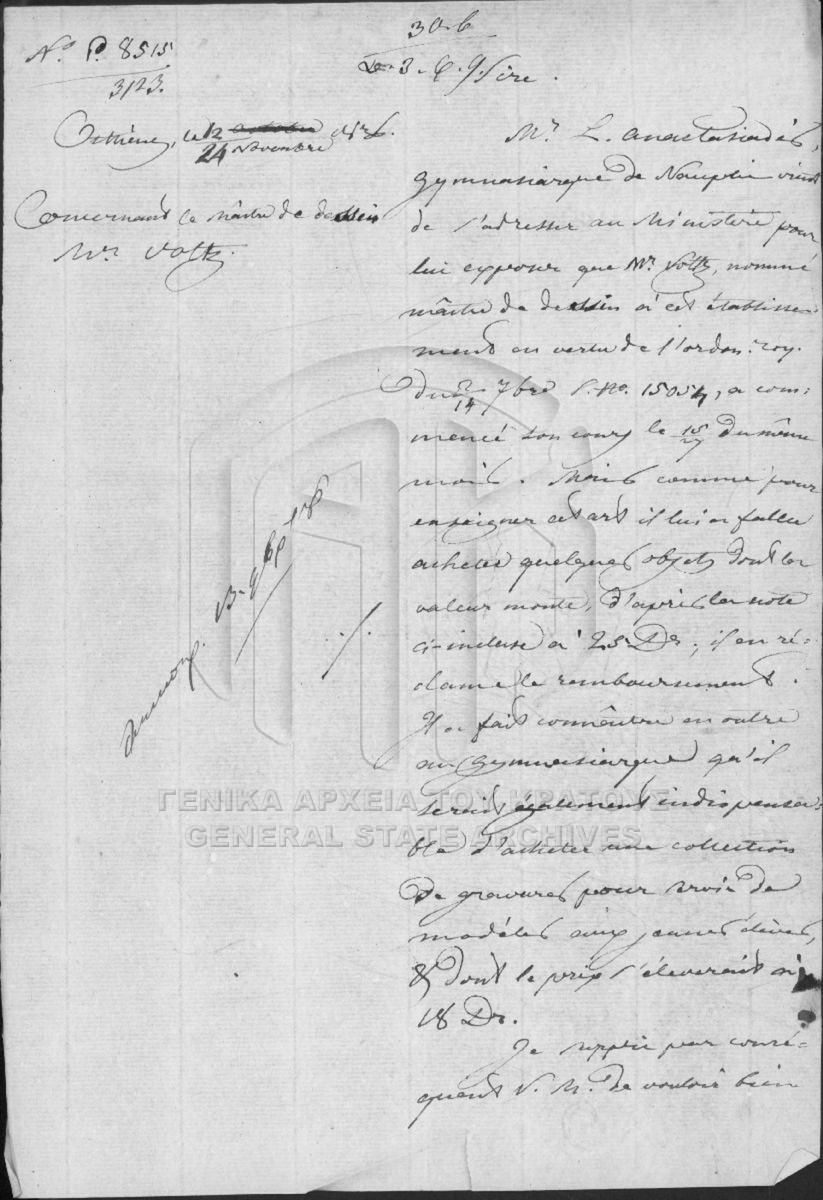 30-b
No. P. 8515
3123.
3.
Sire.
Athènes, le 12 octobre
24 Novembre
Concernant le maître de dessin
Mr. Voltz.
Mr. L. Anastasiadès,
gymnasiarque de Nauplie vient
de s'adresser au Ministère pour
lui exposer que Mr. Voltz, nommé
maître de dessin à cet établisse-
ment en vertu de l'ordon: roy.
du 2/14 7bre s. No. 15054, a com:
mencé son cours le 15/27 du même
mois. Mais comme pour
enseigner cet art il lui a fallu
acheter quelques objets dont la
valeur monte, d'après la note
ci-incluse à 25 Dr.; il en ré-
clame le remboursement.
Il a fait connâitre en outre
au gymnasiarque qu'il
serait également indispensa=
ble d'acheter une collection
de gravures pour servir de
modèles aux jeunes élèves,
& dont le prix s'élèverait à
18 Dr.
Je supplie par consé=
quent V. M. de vouloir bien
ΓΕΝΙΚΑ ΑΡΧΕΙΑ ΤΟΥ ΚΡΑΤΟΥΣ
GENERAL STATE ARCHIVES